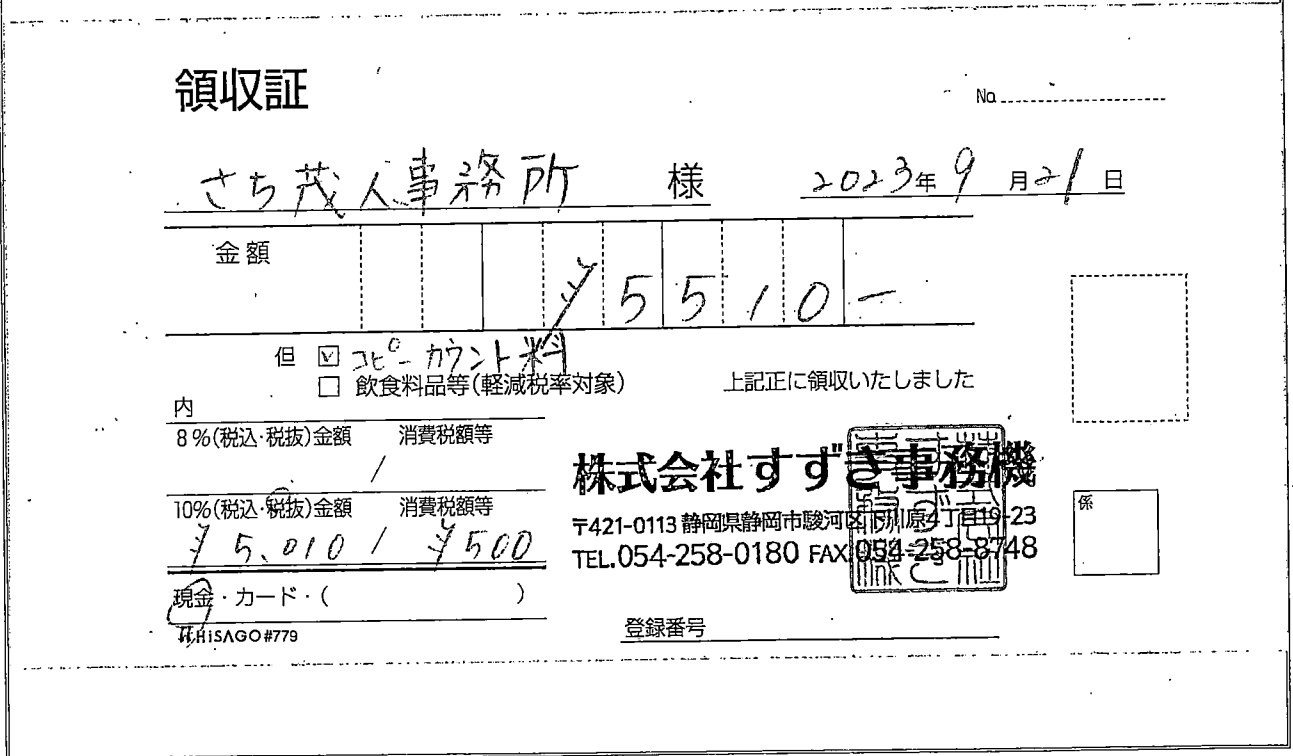 領収証
No.
さち茂人事務所 様 2023年9月21日
金額 ¥5510-
但 ☑ コピーカウント料
□ 飲食料品等(軽減税率対象) 上記正に領収いたしました
内
8%(税込・税抜)金額 消費税額等
/
10%(税込・税抜)金額 消費税額等
¥5,010 / ¥500
株式会社すずき事務機
〒421-0113 静岡県静岡市駿河区下川原4丁目19-23
TEL.054-258-0180 FAX.054-258-8748
係
現金・カード・( )
HISAGO #779
登録番号